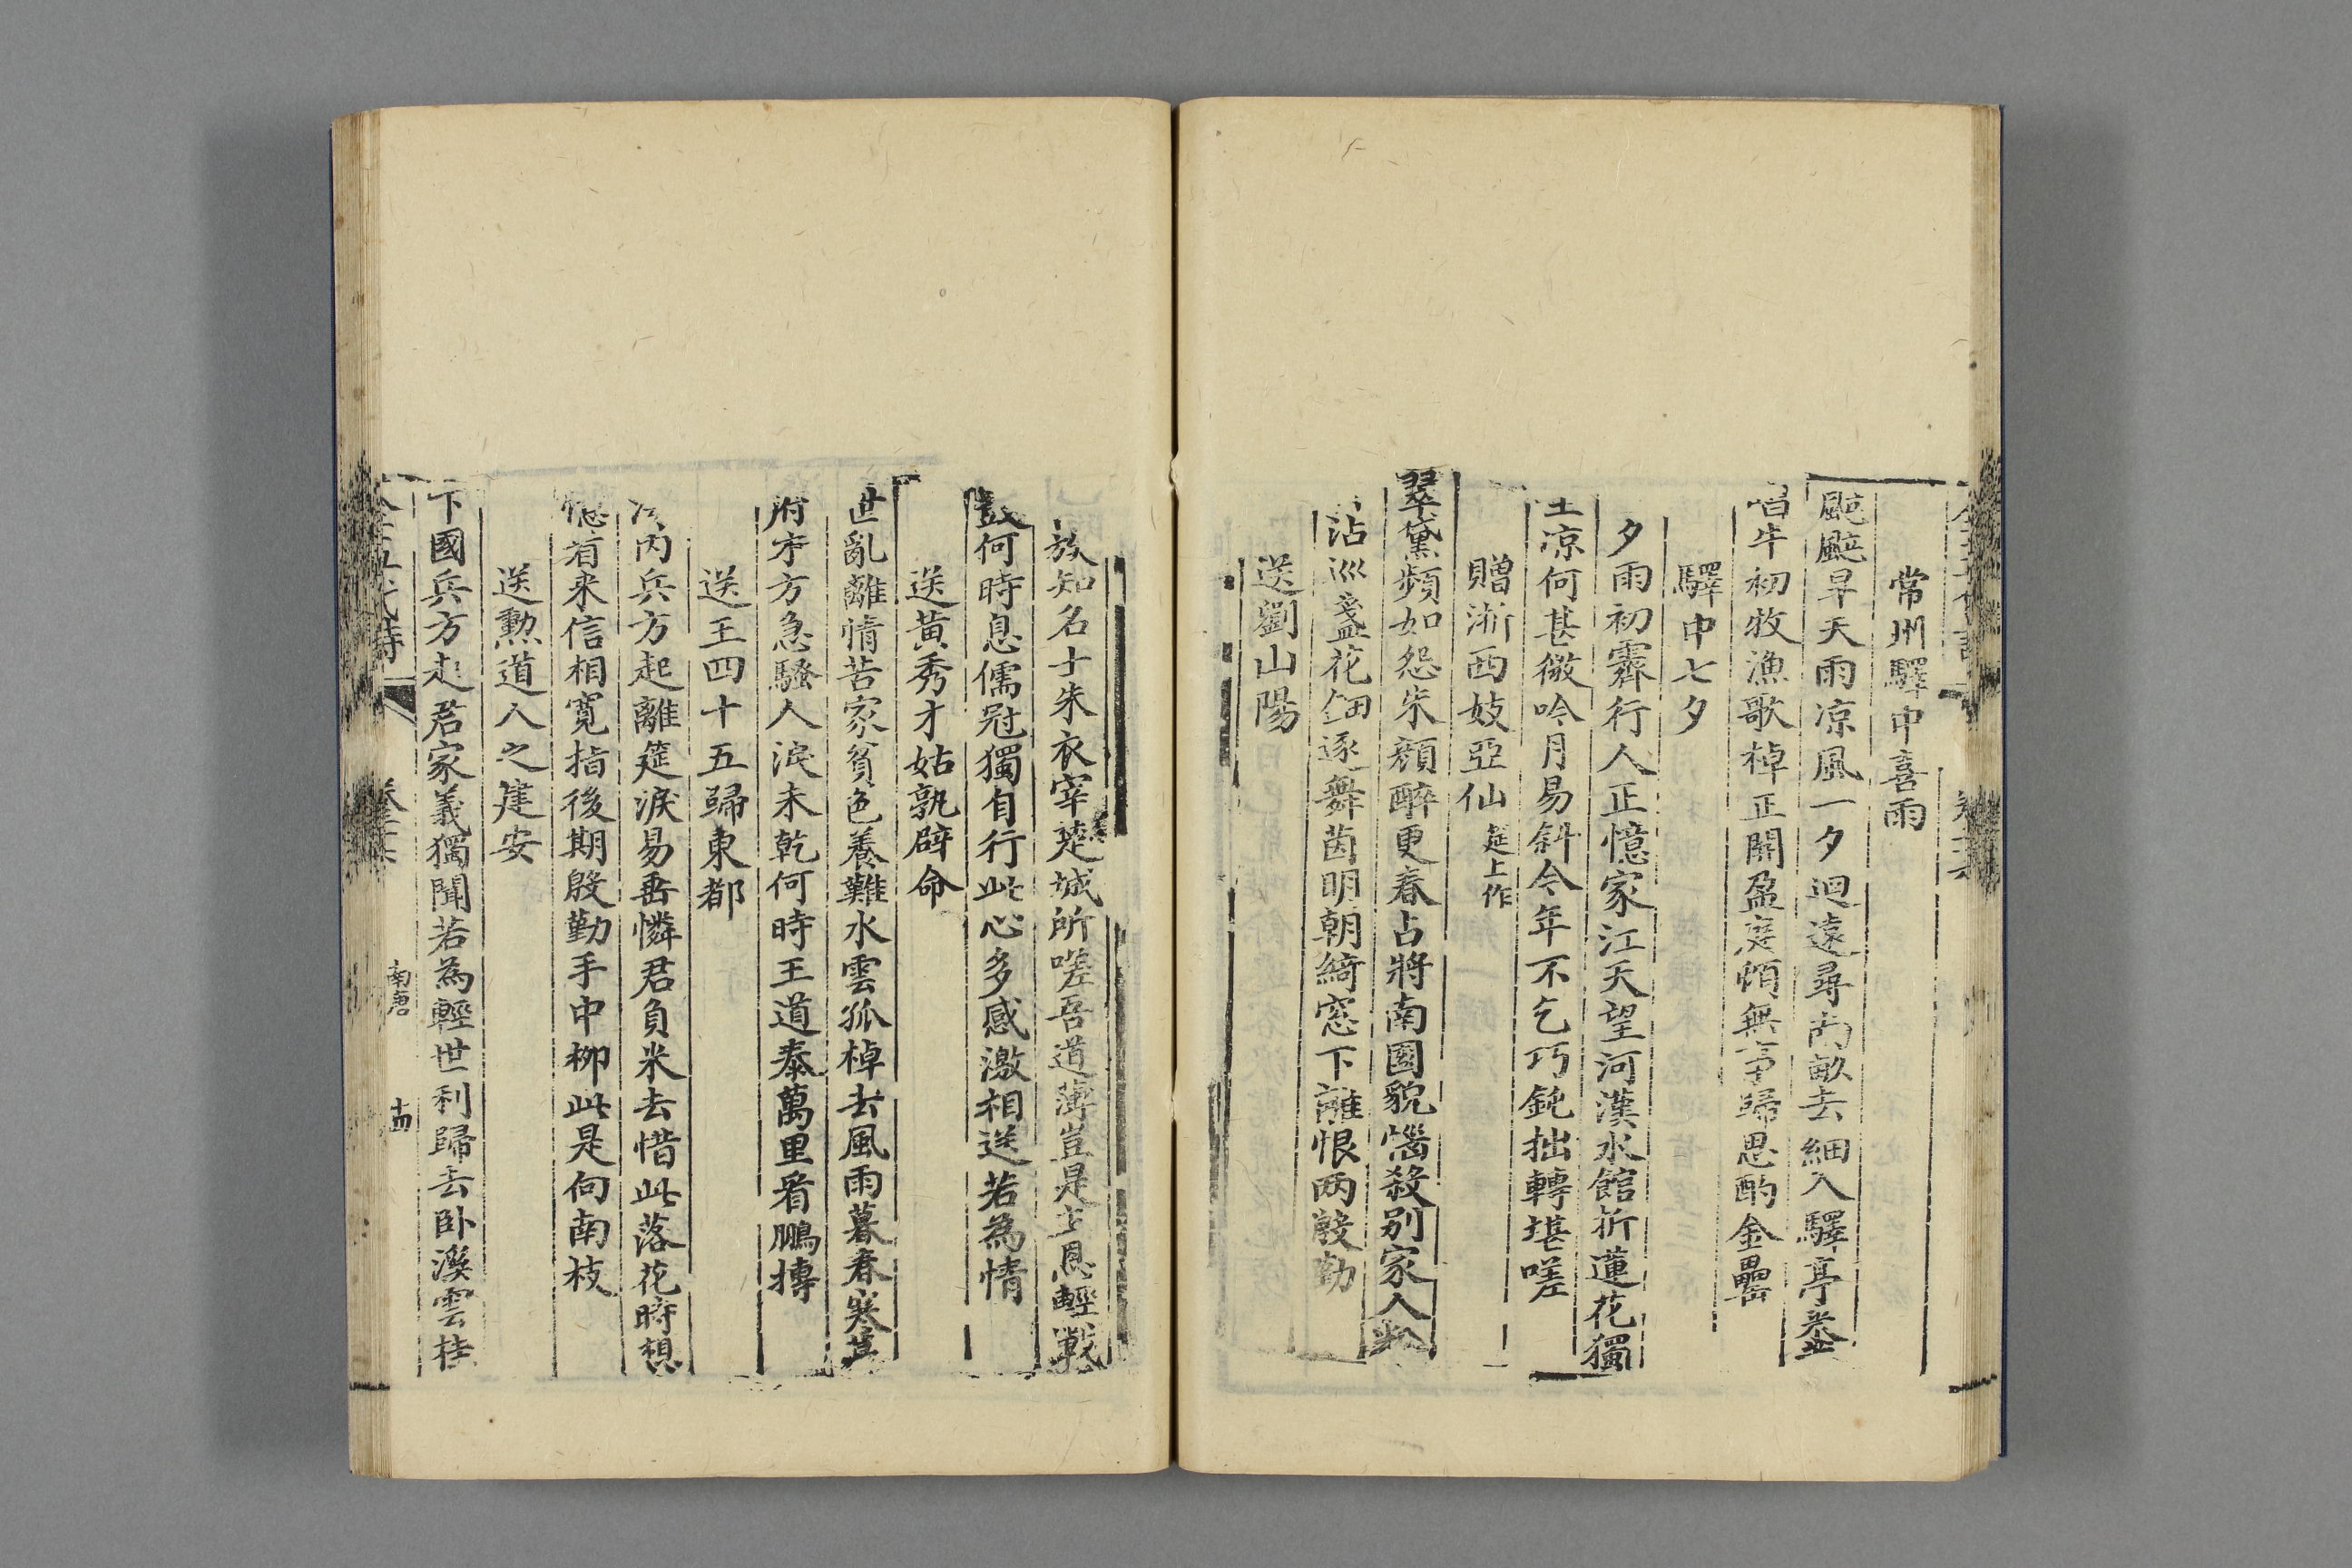 常州驛中喜雨
颮颮早天雨凉風一夕迴遠尋南畝去細入驛亭來蓋
唱牛初牧漁歌棹正開盈庭頓無事歸思酌金罍
驛中七夕
夕雨初霽行人正憶家江天望河漢水館折蓮花獨
坐凉何甚微吟月易斜今年不乞巧鈍拙轉堪嗟
贈浙西妓亞仙 筵上作
翠黛嚬如怨朱顔醉更春占將南國貌惱殺别家人粉
沾巡盞花鈿逐舞茵明朝綺窓下離恨两殷勤
送劉山陽
族知名士朱衣宰楚城所嗟吾道薄豈是主恩輕戰
鼓何時息儒冠獨自行此心多感激相送若為情
送黄秀才姑孰辟命
世亂離情苦家貧色養難水雲孤棹去風雨暮春寒幕
府才方急騷人淚未乾何時王道泰萬里看鵬摶
送王四十五歸東都
丙兵方起離筵淚易垂憐君負米去惜此落花時想
憶看来信相寛指後期殷勤手中柳此是向南枝
送勲道人之建安
下國兵方起君家義獨聞若為輕世利歸去卧溪雲挂
南唐
十四